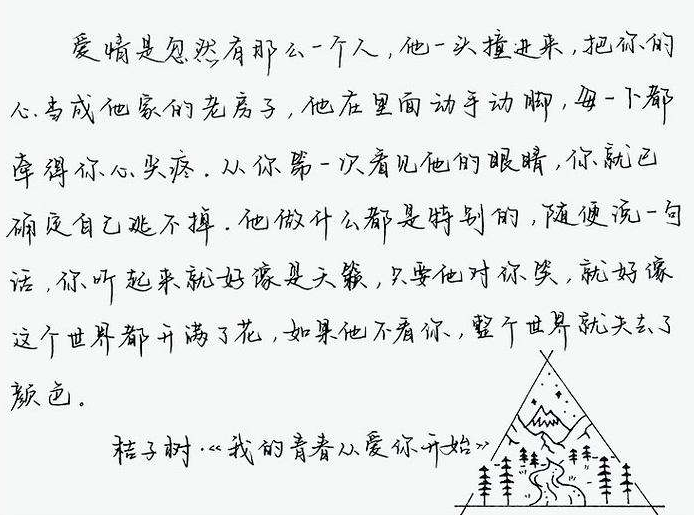 爱情是忽然有那么一个人,他一头撞进来,把你的
心当成他家的老房子,他在里面动手动脚,每一下都
牵得你心尖疼.从你第一次看见他的眼睛,你就已
确定自己逃不掉.他做什么都是特别的,随便说一句
话,你听起来就好像是天籁,只要他对你笑,就好像
这个世界都开满了花,如果他不看你,整个世界就失去了
颜色。
桔子树·《我的青春从爱你开始》